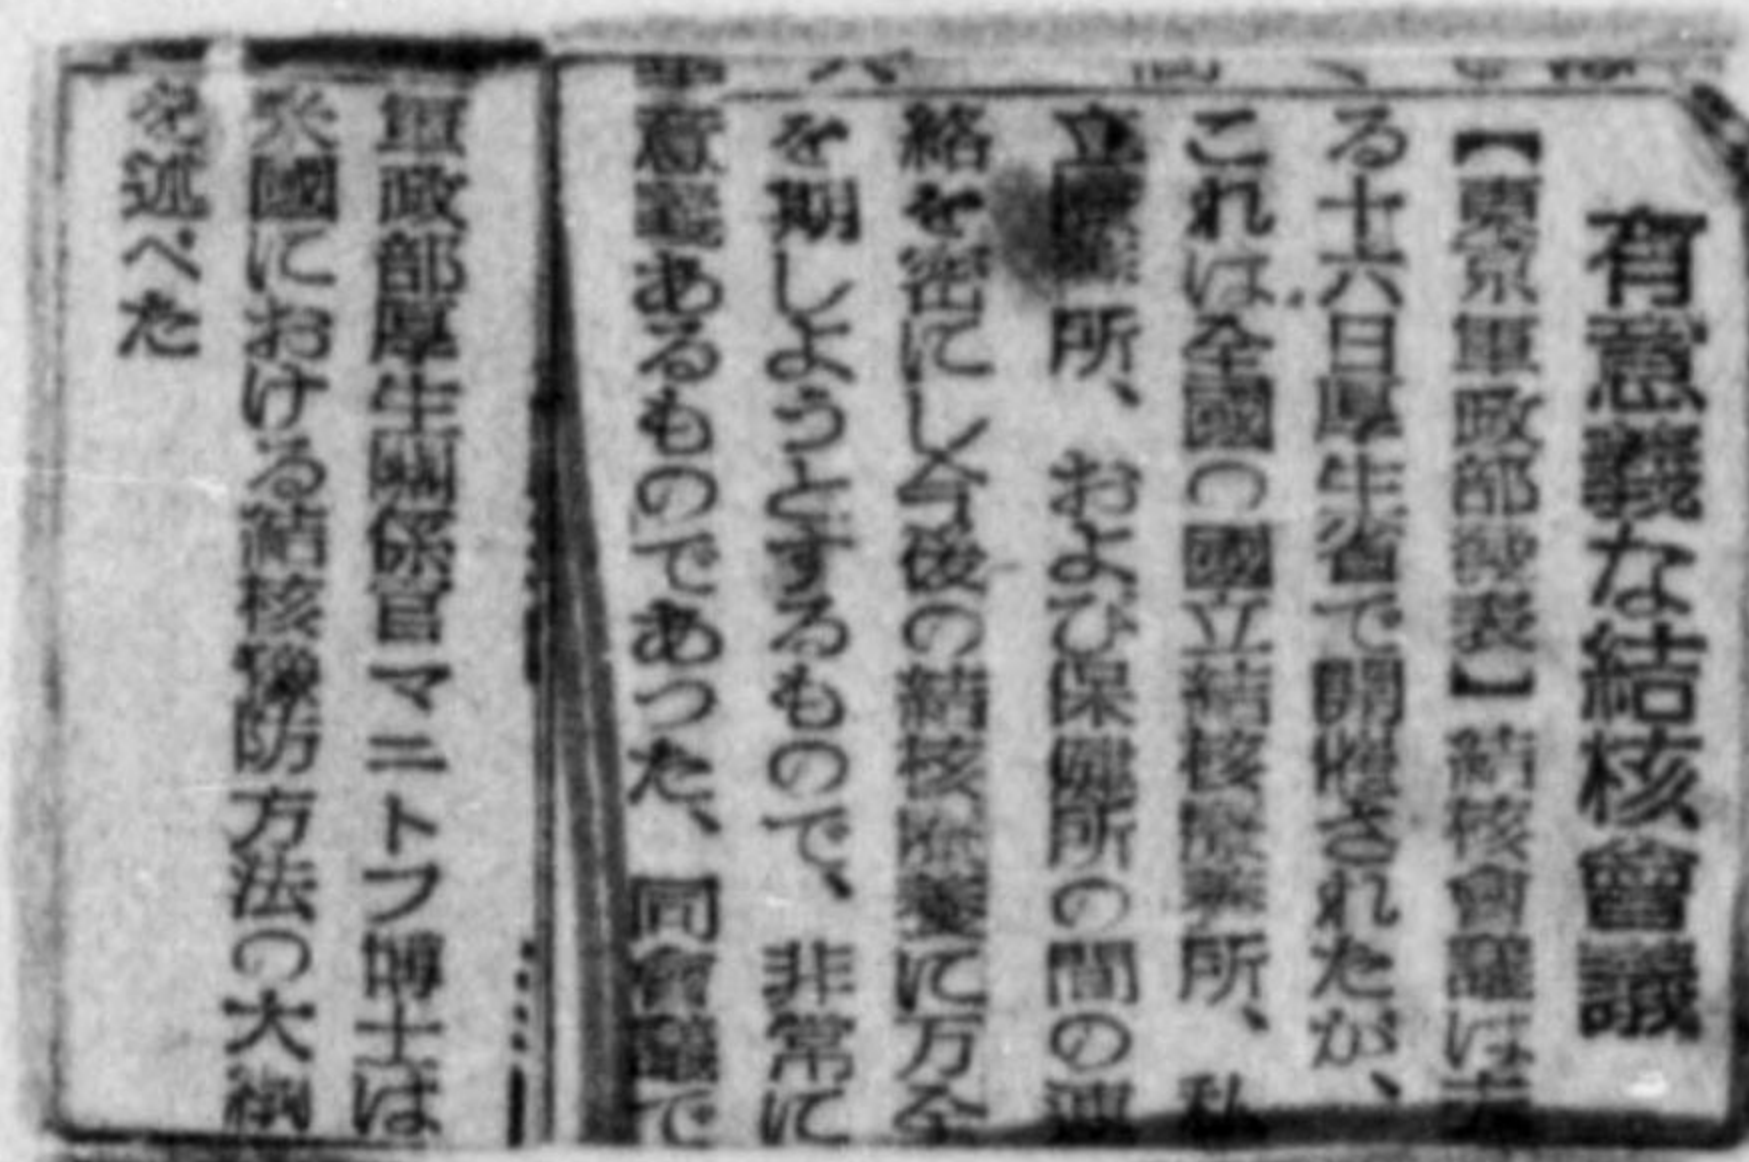 有意義な結核會議
【東京軍政部發表】結核會議は去
る十六日厚生省で開催されたが、
これは全國の國立結核療養所、私
立療養所、および保健所の間の連
絡を密にし今後の結核療養に万全
を期しようとするもので、非常に
重意義あるものであつた、同會議で
軍政部厚生關係官マニトフ博士は
米國における結核豫防方法の大綱
を述べた